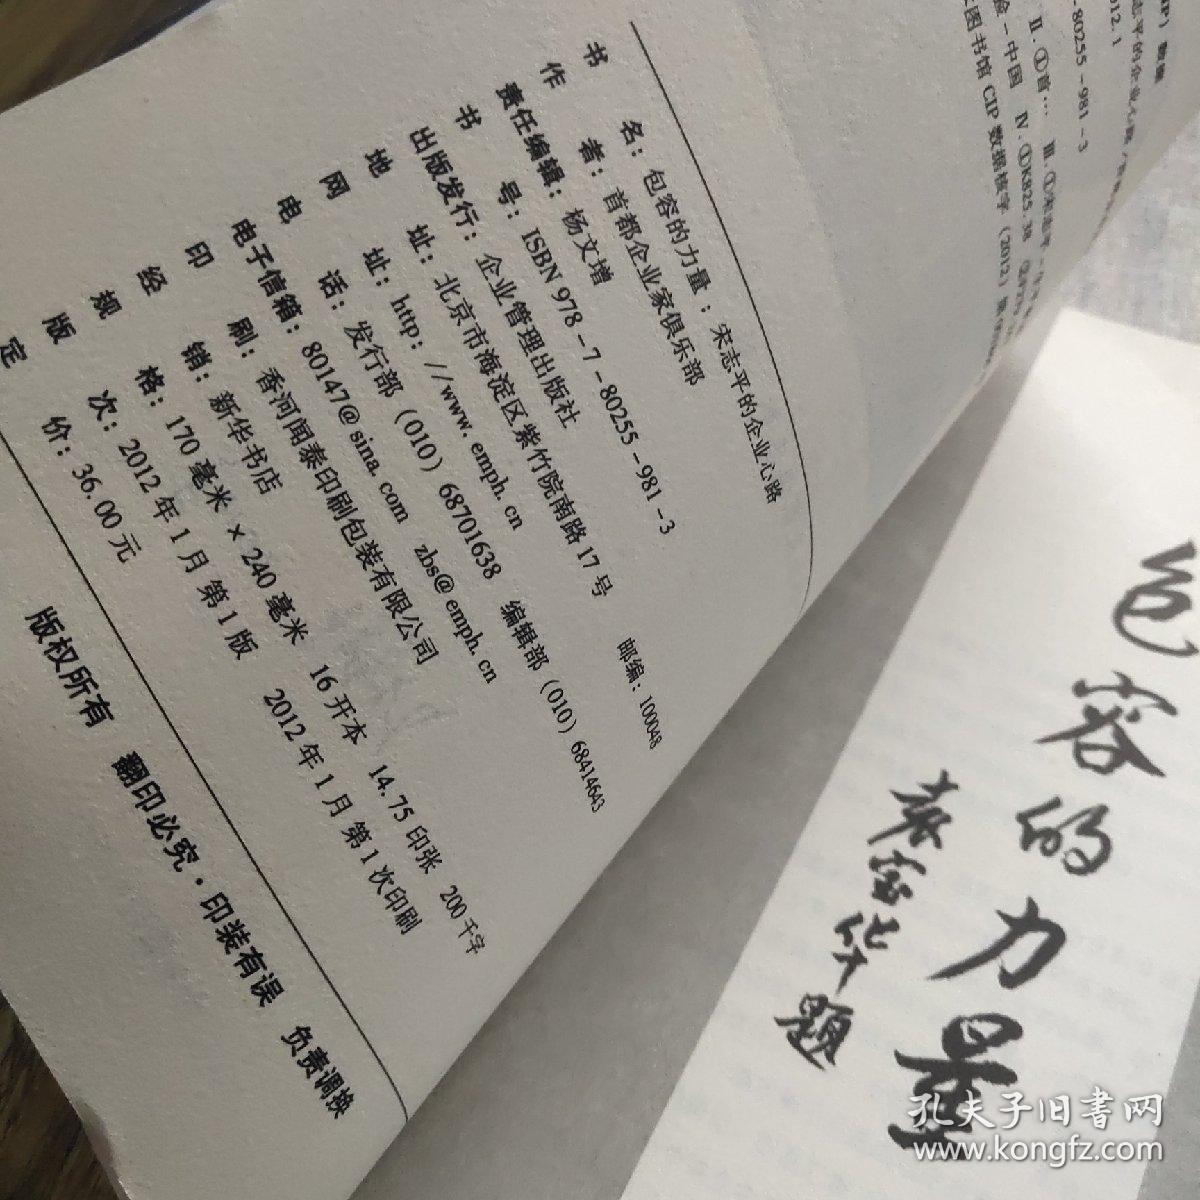 书 名：包容的力量：宋志平的企业心路
作 者：首都企业家俱乐部
责任编辑：杨文增
书 号：ISBN 978-7-80255-981-3
出版发行：企业管理出版社
地 址：北京市海淀区紫竹院南路17号 邮编：100048
网 址：http：//www.emph.cn
电 话：发行部（010）68701638 编辑部（010）68414643
电子信箱：80147@sina.com zbs@emph.cn
印 刷：香河闻泰印刷包装有限公司
经 销：新华书店
规 格：170毫米×240毫米 16开本 14.75印张 200千字
版 次：2012年1月第1版 2012年1月第1次印刷
定 价：36.00元
版权所有 翻印必究·印装有误 负责调换
2012.1
-80255-981-3
Ⅱ.①首… Ⅲ.①宋志平
-中国 Ⅳ.①K825.38
图书馆CIP数据核字（2012）
包容的力量
袁宝华题
孔夫子旧书网
www.kongfz.com